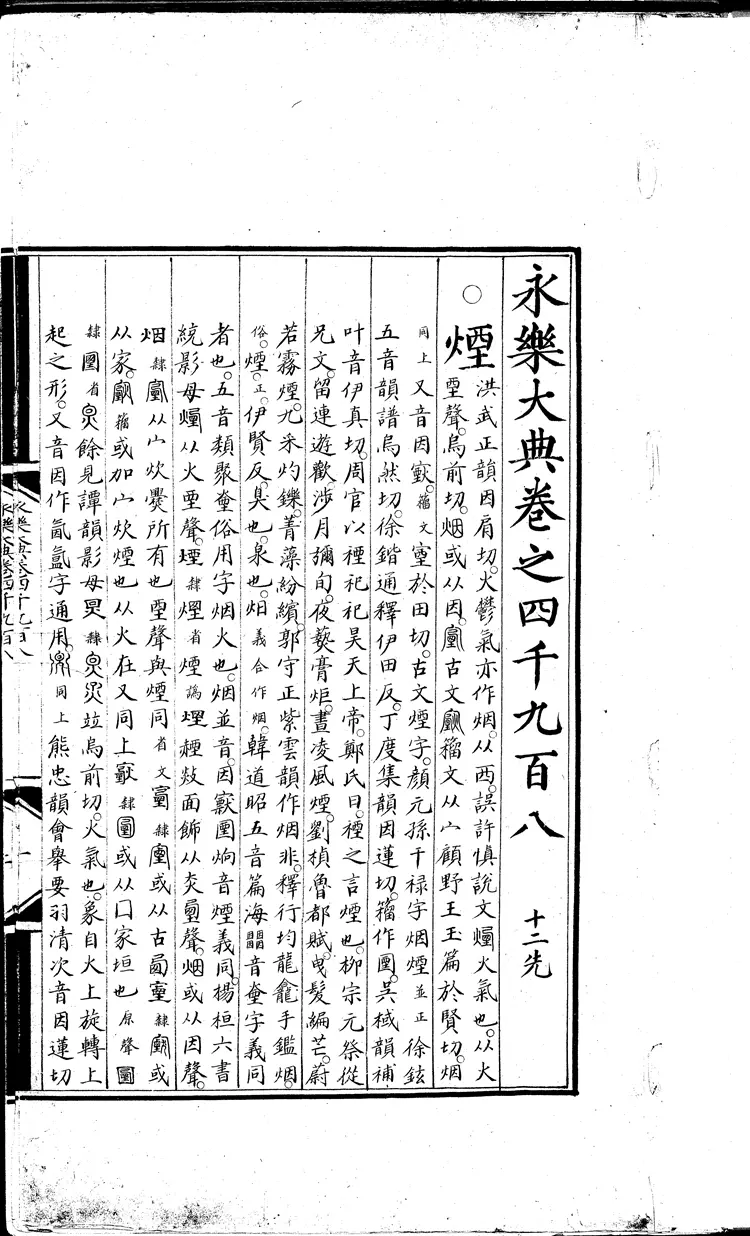 永樂大典卷之四千九百八 十二先
○煙
洪武正韻因肩切。火鬱氣亦作烟。从西。誤許慎說文爞火氣也。从火
垔聲。烏前切。烟或从因。古文籀文从宀顧野王玉篇於賢切。烟
同上又音因籀文於田切。古文煙字。顏元孫干祿字烟煙並正徐鉉
五音韻譜烏然切。徐鍇通釋伊田反。丁度集韻因蓮切。籀作吳棫韻補
叶音伊真切。周官以禋祀祀昊天上帝。鄭氏曰。禋之言煙也。柳宗元祭從
兄文。留連遊歡。涉月彌旬。夜爇膏炬。晝凌風煙。劉楨魯都賦。曳髮編芒。蔚
若霧煙。九采灼鑠。菁藻紛繽。郭守正紫雲韻作烟非。釋行均龍龕手鑑烟。
俗。煙。正。伊賢反。臭也。泉也。炟義合作烟。韓道昭五音篇海音字義同
者也。五音類聚俗用字烟火也。烟並音。因音煙義同。楊桓六書
統影母从火垔聲。煙隸省煙譌面飾从聲。烟或从因聲。
烟隸从宀炊爨所有也垔聲與煙同省文隸或从古隸或
从家。籀或加宀炊煙也从火在又同上隸或从囗家垣也原聲
隸省餘見譚韻影母隸竝烏前切。火氣也。象自火上旋轉上
起之形。又音因作氤氳字通用。同上熊忠韻會舉要羽清次音因蓮切
永樂大典卷四千九百八